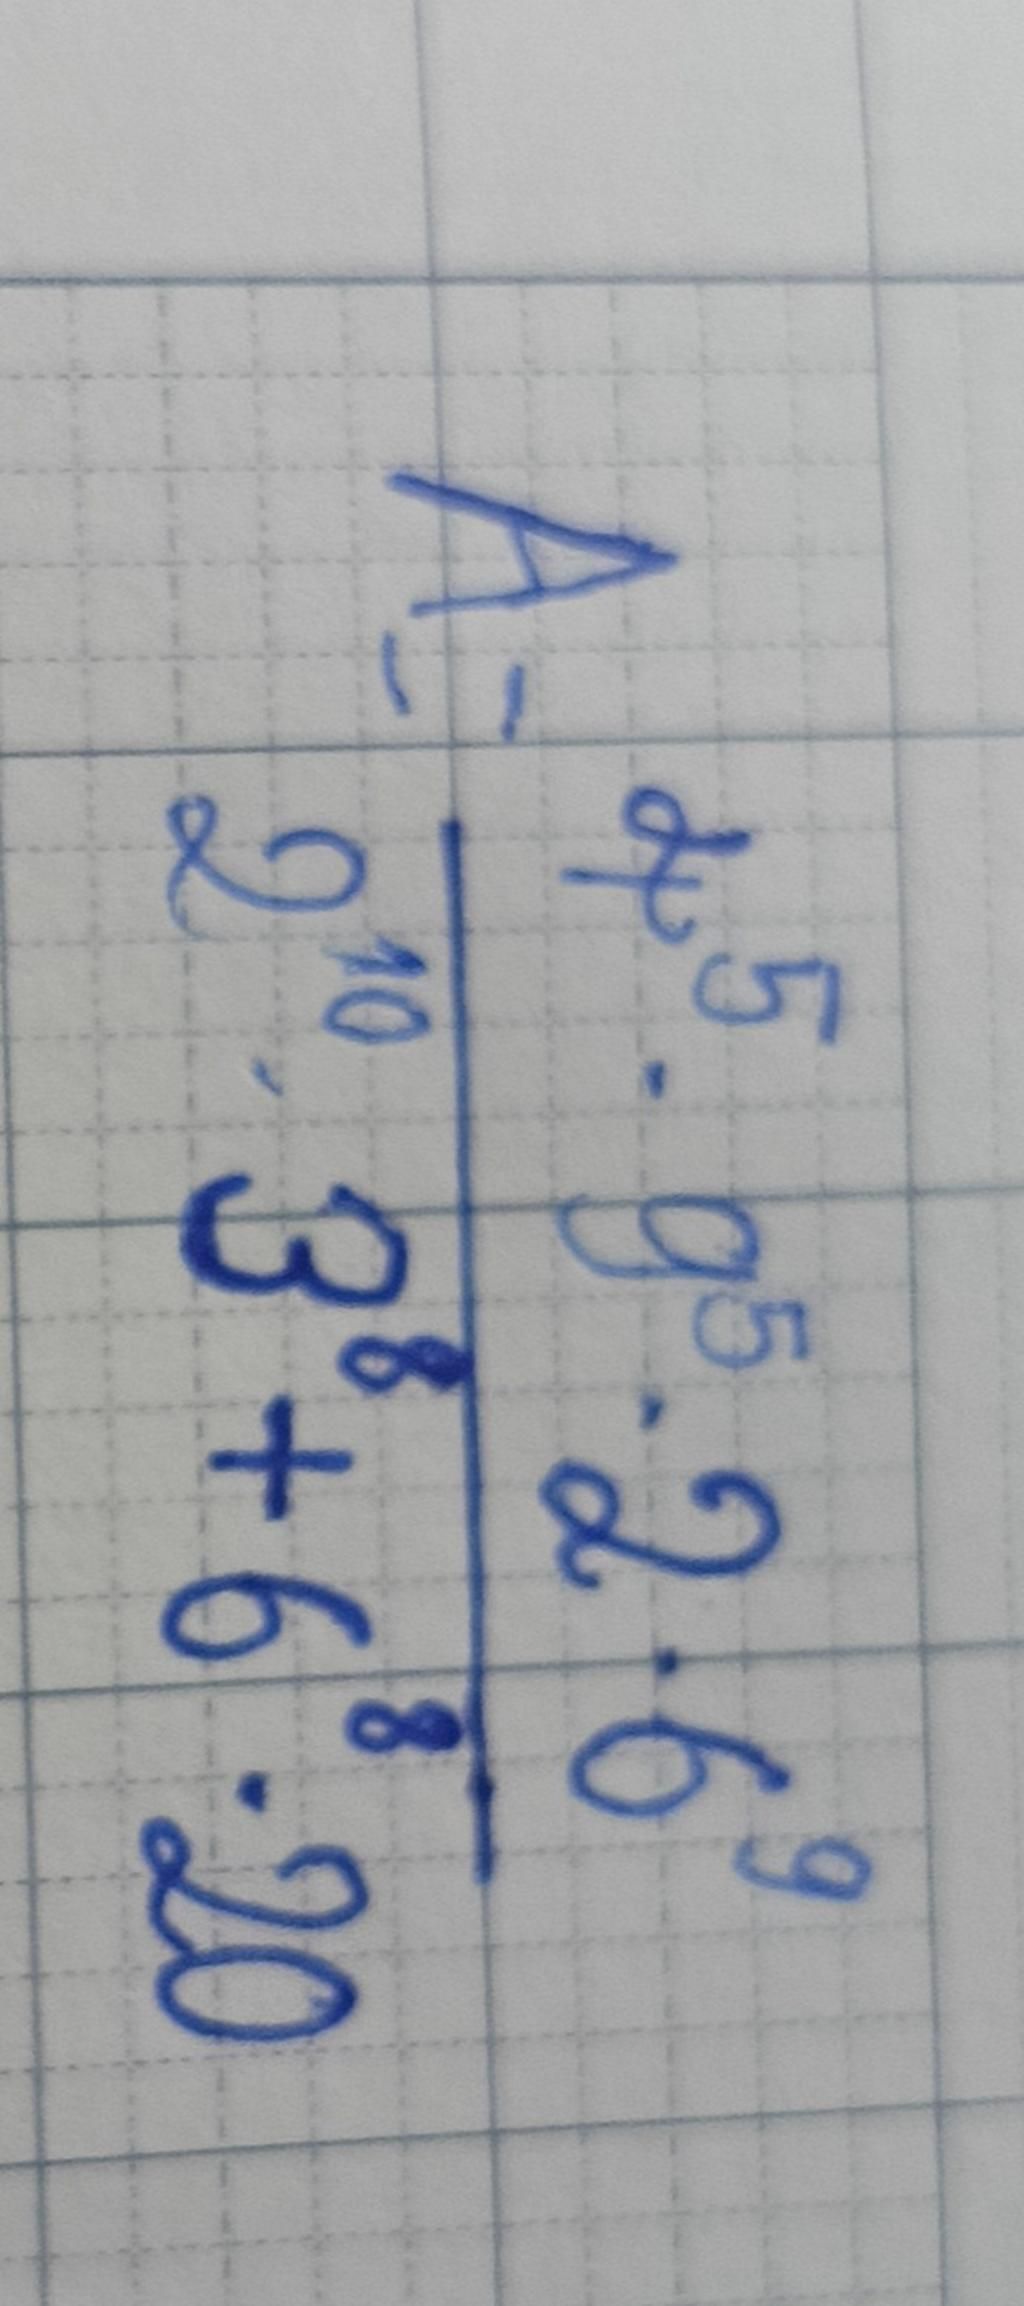 A = \frac{4^5 \cdot 9^5 \cdot 2 \cdot 6^9}{2^{10} \cdot 3^8 + 6^8 \cdot 20}